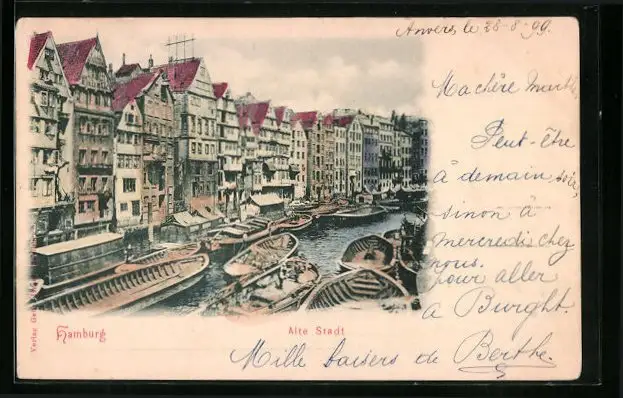 Anvers le 28-8-99.
Ma chère Marthe,
Peut-être
à demain soir,
sinon à
mercredi chez
nous.
pour aller
à Burght.
Mille baisers de Berthe.
Hamburg
Alte Stadt
Verlag